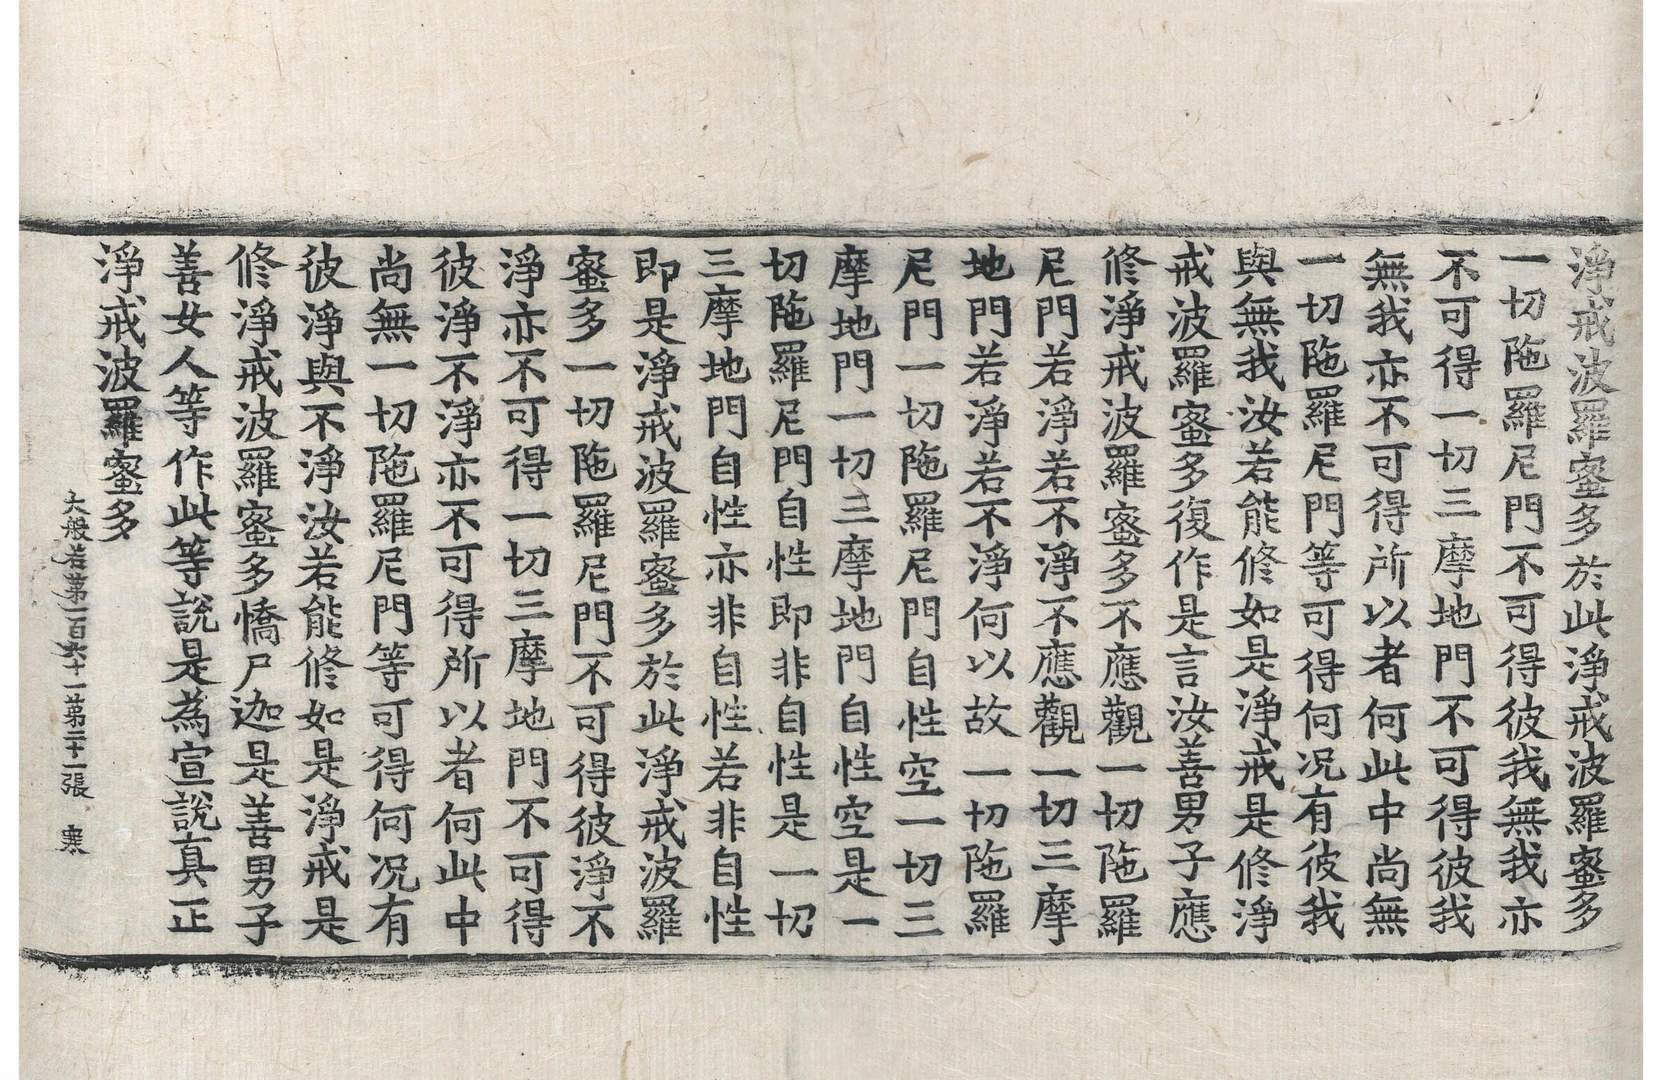 淨戒波羅蜜多於此淨戒波羅蜜多
一切陁羅尼門不可得彼我無我亦
不可得一切三摩地門不可得彼我
無我亦不可得所以者何此中尚無
一切陁羅尼門等可得何况有彼我
與無我汝若能修如是淨戒是修淨
戒波羅蜜多復作是言汝善男子應
修淨戒波羅蜜多不應觀一切陁羅
尼門若淨若不淨不應觀一切三摩
地門若淨若不淨何以故一切陁羅
尼門一切陁羅尼門自性空一切三
摩地門一切三摩地門自性空是一
切陁羅尼門自性即非自性是一切
三摩地門自性亦非自性若非自性
即是淨戒波羅蜜多於此淨戒波羅
蜜多一切陁羅尼門不可得彼淨不
淨亦不可得一切三摩地門不可得
彼淨不淨亦不可得所以者何此中
尚無一切陁羅尼門等可得何况有
彼淨與不淨汝若能修如是淨戒是
修淨戒波羅蜜多憍尸迦是善男子
善女人等作此等說是為宣說真正
淨戒波羅蜜多
大般若第一百六十一第二十一張 寒